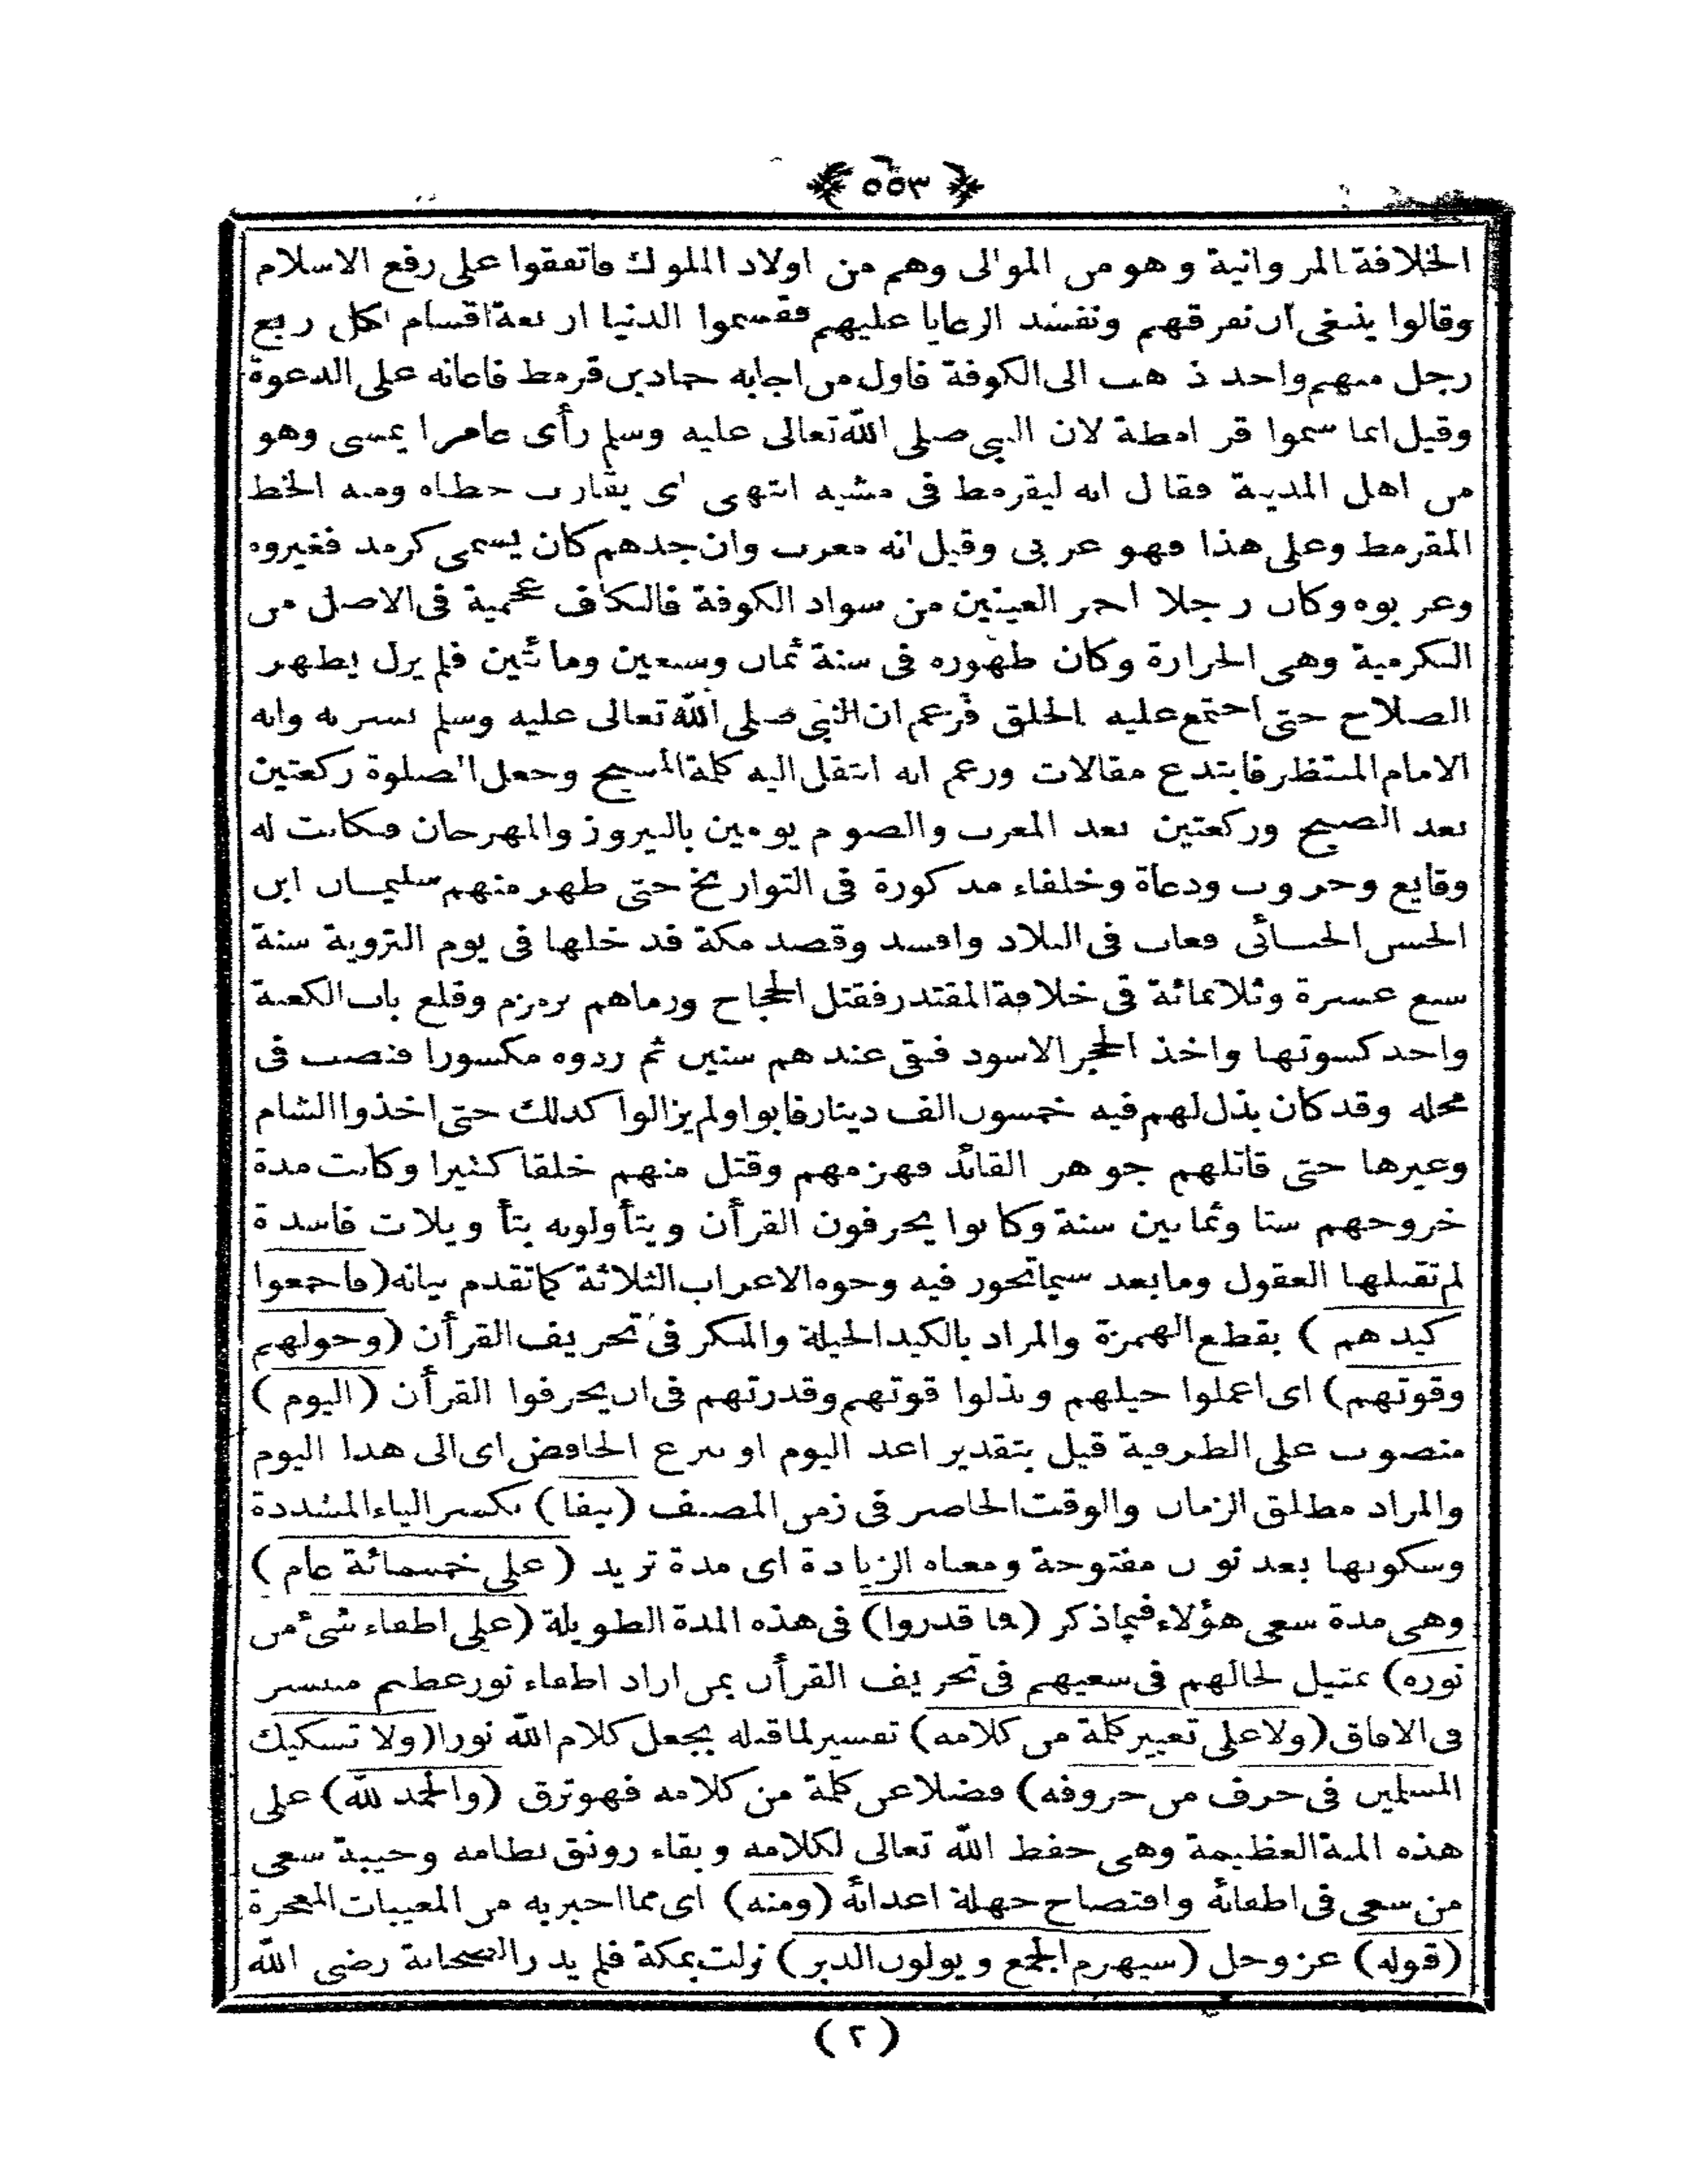 ﴿ ٥٥٣ ﴾
الخلافة المروانية وهو من الموالى وهم من اولاد الملوك فاتفقوا على رفع الاسلام
وقالوا ينبغى ان نفرقهم ونفسد الرعايا عليهم فقسموا الدنيا اربعة اقسام لكل ربع
رجل منهم واحد ذهب الى الكوفة فاول من اجابه حماد بن قرمط فاعانه على الدعوة
وقيل انما سموا قرامطة لان النبى صلى الله تعالى عليه وسلم رأى عامرا يمسى وهو
من اهل المدينة فقال انه ليقرمط فى مشيه انتهى اى يقارب خطاه ومنه الخط
المقرمط وعلى هذا فهو عربى وقيل انه معرب وان جدهم كان يسمى كرمد فغيروه
وعربوه وكان رجلا احمر العينين من سواد الكوفة فالكاف عجمية فى الاصل من
الكرمية وهى الحرارة وكان ظهوره فى سنة ثمان وسبعين ومائتين فلم يزل يظهر
الصلاح حتى اجتمع عليه الخلق فزعم ان النبى صلى الله تعالى عليه وسلم بسر به وانه
الامام المنتظر فابتدع مقالات وزعم انه انتقل اليه كلمة المسيح وجعل الصلوة ركعتين
بعد الصبح وركعتين بعد المغرب والصوم يومين بالنيروز والمهرجان فكانت له
وقايع وحروب ودعاة وخلفاء مذكورة فى التواريخ حتى ظهر منهم سليمان ابن
الحسن الحسائى فعاب فى البلاد وافسد وقصد مكة فدخلها فى يوم التروية سنة
سبع عشرة وثلاثمائة فى خلافة المقتدر فقتل الحجاج ورماهم بزمزم وقلع باب الكعبة
واخذ كسوتها واخذ الحجر الاسود فبقى عندهم سنين ثم ردوه مكسورا فنصب فى
محله وقد كان بذل لهم فيه خمسون الف دينار فابوا ولم يزالوا كذلك حتى اخذوا الشام
وغيرها حتى قاتلهم جوهر القائد فهزمهم وقتل منهم خلقا كثيرا وكانت مدة
خروجهم ستا وثمانين سنة وكانوا يحرفون القرأن ويتأولونه بتأويلات فاسدة
لم تقبلها العقول وما بعد سيما تحوز فيه وجوه الاعراب الثلاثة كما تقدم بيانه (فاجمعوا
كيدهم) بقطع الهمزة والمراد بالكيد الحيلة والمكر فى تحريف القرأن (وحولهم
وقوتهم) اى اعملوا حيلهم وبذلوا قوتهم وقدرتهم فى ان يحرفوا القرأن (اليوم)
منصوب على الظرفية قيل بتقدير اعد اليوم او بنزع الخافض اى الى هذا اليوم
والمراد مطلق الزمان والوقت الحاضر فى زمن المصنف (نيفا) بكسر الياء المشددة
وسكونها بعد نون مفتوحة ومعناه الزيادة اى مدة تزيد (على خمسمائة عام)
وهى مدة سعى هؤلاء فيما ذكر (فما قدروا) فى هذه المدة الطويلة (على اطفاء شئ من
نوره) تمثيل لحالهم فى سعيهم فى تحريف القرأن بمن اراد اطفاء نور عظيم منتشر
فى الافاق (ولا على تغيير كلمة من كلامه) تفسير لما قبله بجعل كلام الله نورا (ولا تشكيك
المسلمين فى حرف من حروفه) فضلا عن كلمة من كلامه فهو ترق (والحمد لله) على
هذه المنة العظيمة وهى حفظ الله تعالى لكلامه وبقاء رونق نظامه وخيبة سعى
من سعى فى اطفائه وافتضاح جهلة اعدائه (ومنه) اى مما اخبر به من المغيبات المعجزة
(قوله) عز وجل (سيهزم الجمع ويولون الدبر) نزلت بمكة فلم يدر الصحابة رضى الله
(٢)